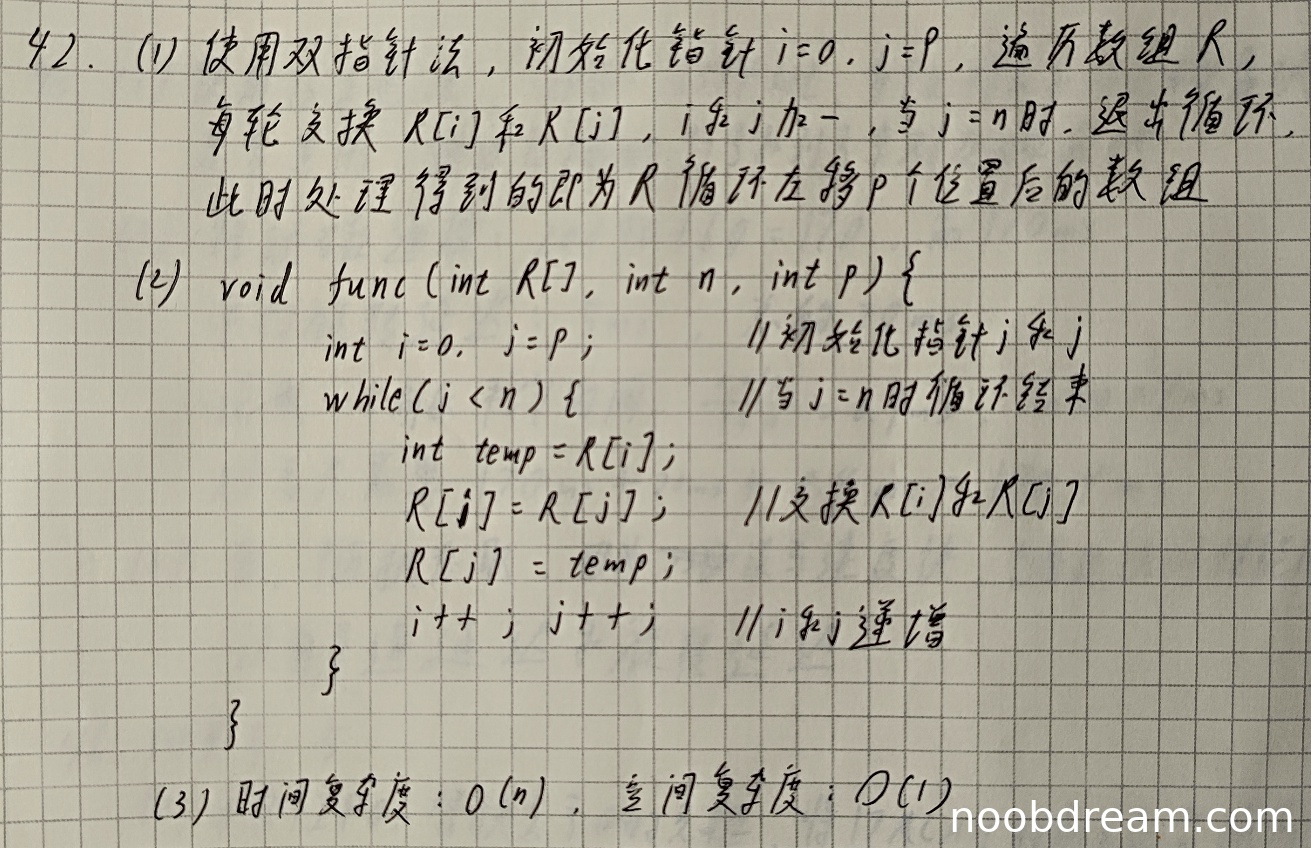 42. (1) 使用双指针法，初始化指针 i=0. j=p，遍历数组 R，
每轮交换 R[i] 和 R[j]，i 和 j 加一，当 j=n 时. 退出循环.
此时处理得到的即为 R 循环左移 p 个位置后的数组
(2) void func(int R[], int n, int p){
int i=0. j=p; //初始化指针 i 和 j
while(j<n){ //当 j=n 时循环结束
int temp=R[i];
R[i]=R[j]; //交换 R[i] 和 R[j]
R[j] = temp;
i++; j++; //i 和 j 递增
}
}
(3) 时间复杂度：O(n)，空间复杂度：O(1)
noobdream.com